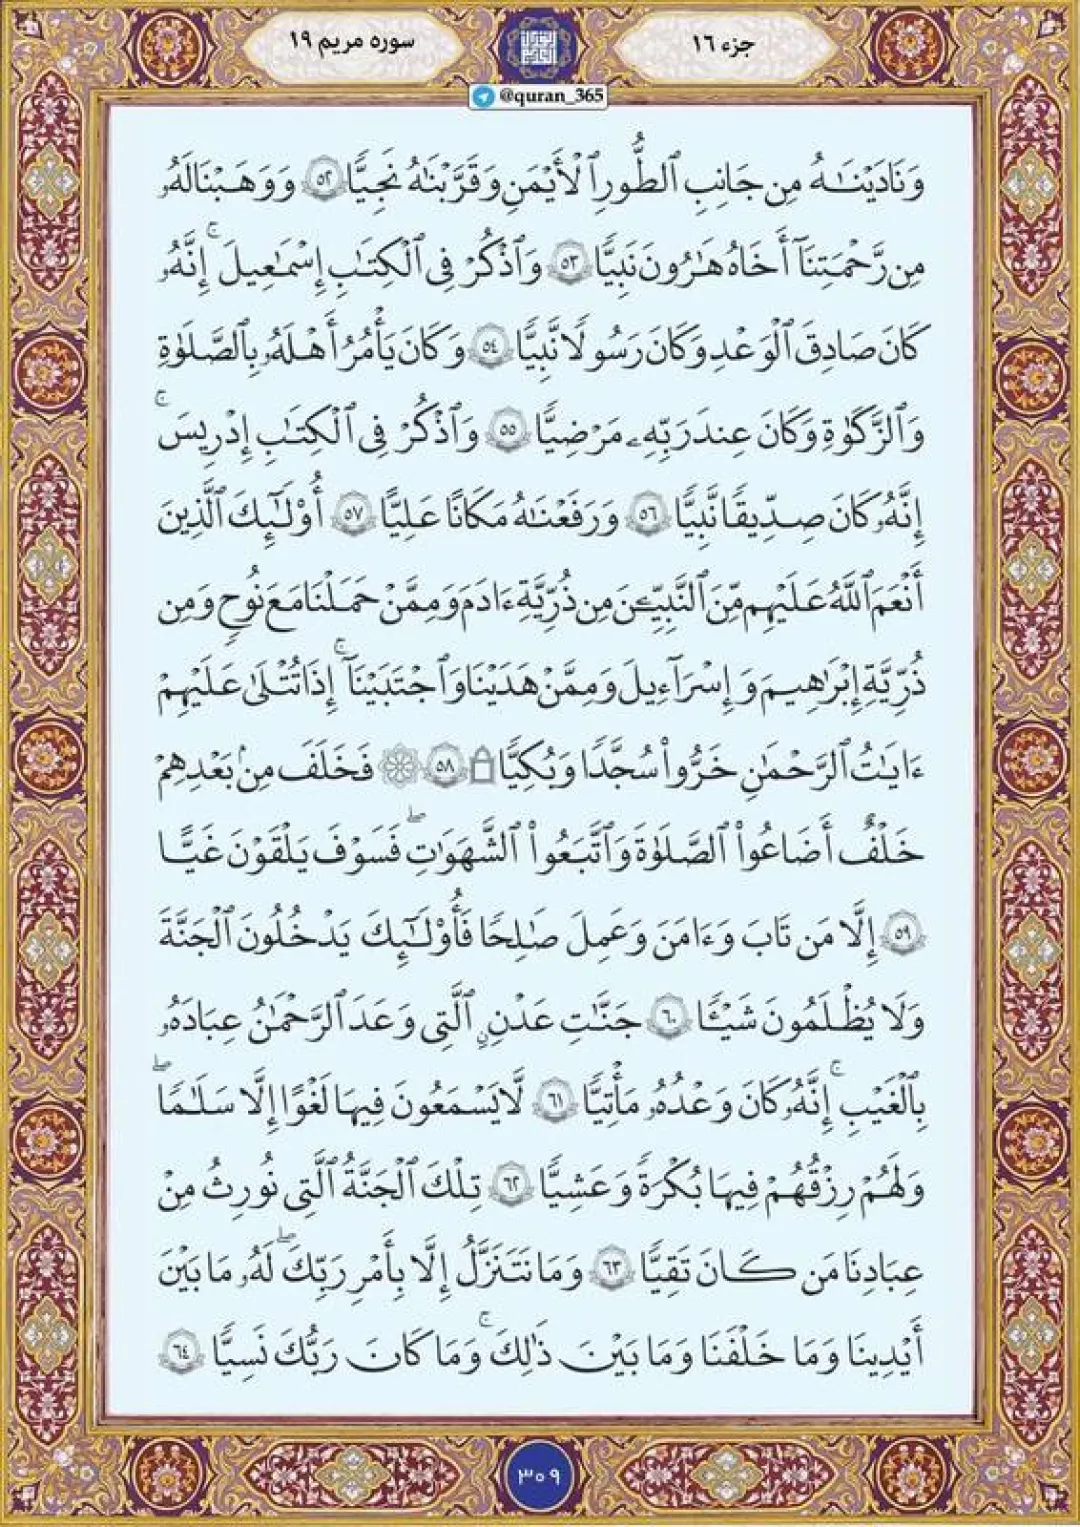 جزء ۱۶
سوره مریم ۱۹
@quran_365
وَنَادَيْنَـٰهُ مِن جَانِبِ ٱلطُّورِ ٱلْأَيْمَنِ وَقَرَّبْنَـٰهُ نَجِيًّا ۝٥٢ وَوَهَبْنَا لَهُۥ
مِن رَّحْمَتِنَآ أَخَاهُ هَـٰرُونَ نَبِيًّا ۝٥٣ وَٱذْكُرْ فِى ٱلْكِتَـٰبِ إِسْمَـٰعِيلَ ۚ إِنَّهُۥ
كَانَ صَادِقَ ٱلْوَعْدِ وَكَانَ رَسُولًا نَّبِيًّا ۝٥٤ وَكَانَ يَأْمُرُ أَهْلَهُۥ بِٱلصَّلَوٰةِ
وَٱلزَّكَوٰةِ وَكَانَ عِندَ رَبِّهِۦ مَرْضِيًّا ۝٥٥ وَٱذْكُرْ فِى ٱلْكِتَـٰبِ إِدْرِيسَ ۚ
إِنَّهُۥ كَانَ صِدِّيقًا نَّبِيًّا ۝٥٦ وَرَفَعْنَـٰهُ مَكَانًا عَلِيًّا ۝٥٧ أُو۟لَـٰٓئِكَ ٱلَّذِينَ
أَنْعَمَ ٱللَّهُ عَلَيْهِم مِّنَ ٱلنَّبِيِّـۧنَ مِن ذُرِّيَّةِ ءَادَمَ وَمِمَّنْ حَمَلْنَا مَعَ نُوحٍ وَمِن
ذُرِّيَّةِ إِبْرَٰهِيمَ وَإِسْرَٰٓءِيلَ وَمِمَّنْ هَدَيْنَا وَٱجْتَبَيْنَآ ۚ إِذَا تُتْلَىٰ عَلَيْهِمْ
ءَايَـٰتُ ٱلرَّحْمَـٰنِ خَرُّوا۟ سُجَّدًا وَبُكِيًّا ۩ ۝٥٨ ۞ فَخَلَفَ مِنۢ بَعْدِهِمْ
خَلْفٌ أَضَاعُوا۟ ٱلصَّلَوٰةَ وَٱتَّبَعُوا۟ ٱلشَّهَوَٰتِ ۖ فَسَوْفَ يَلْقَوْنَ غَيًّا
۝٥٩ إِلَّا مَن تَابَ وَءَامَنَ وَعَمِلَ صَـٰلِحًا فَأُو۟لَـٰٓئِكَ يَدْخُلُونَ ٱلْجَنَّةَ
وَلَا يُظْلَمُونَ شَيْـًٔا ۝٦٠ جَنَّـٰتِ عَدْنٍ ٱلَّتِى وَعَدَ ٱلرَّحْمَـٰنُ عِبَادَهُۥ
بِٱلْغَيْبِ ۚ إِنَّهُۥ كَانَ وَعْدُهُۥ مَأْتِيًّا ۝٦١ لَّا يَسْمَعُونَ فِيهَا لَغْوًا إِلَّا سَلَـٰمًا ۖ
وَلَهُمْ رِزْقُهُمْ فِيهَا بُكْرَةً وَعَشِيًّا ۝٦٢ تِلْكَ ٱلْجَنَّةُ ٱلَّتِى نُورِثُ مِنْ
عِبَادِنَا مَن كَانَ تَقِيًّا ۝٦٣ وَمَا نَتَنَزَّلُ إِلَّا بِأَمْرِ رَبِّكَ ۖ لَهُۥ مَا بَيْنَ
أَيْدِينَا وَمَا خَلْفَنَا وَمَا بَيْنَ ذَٰلِكَ ۚ وَمَا كَانَ رَبُّكَ نَسِيًّا ۝٦٤
۳۰۹